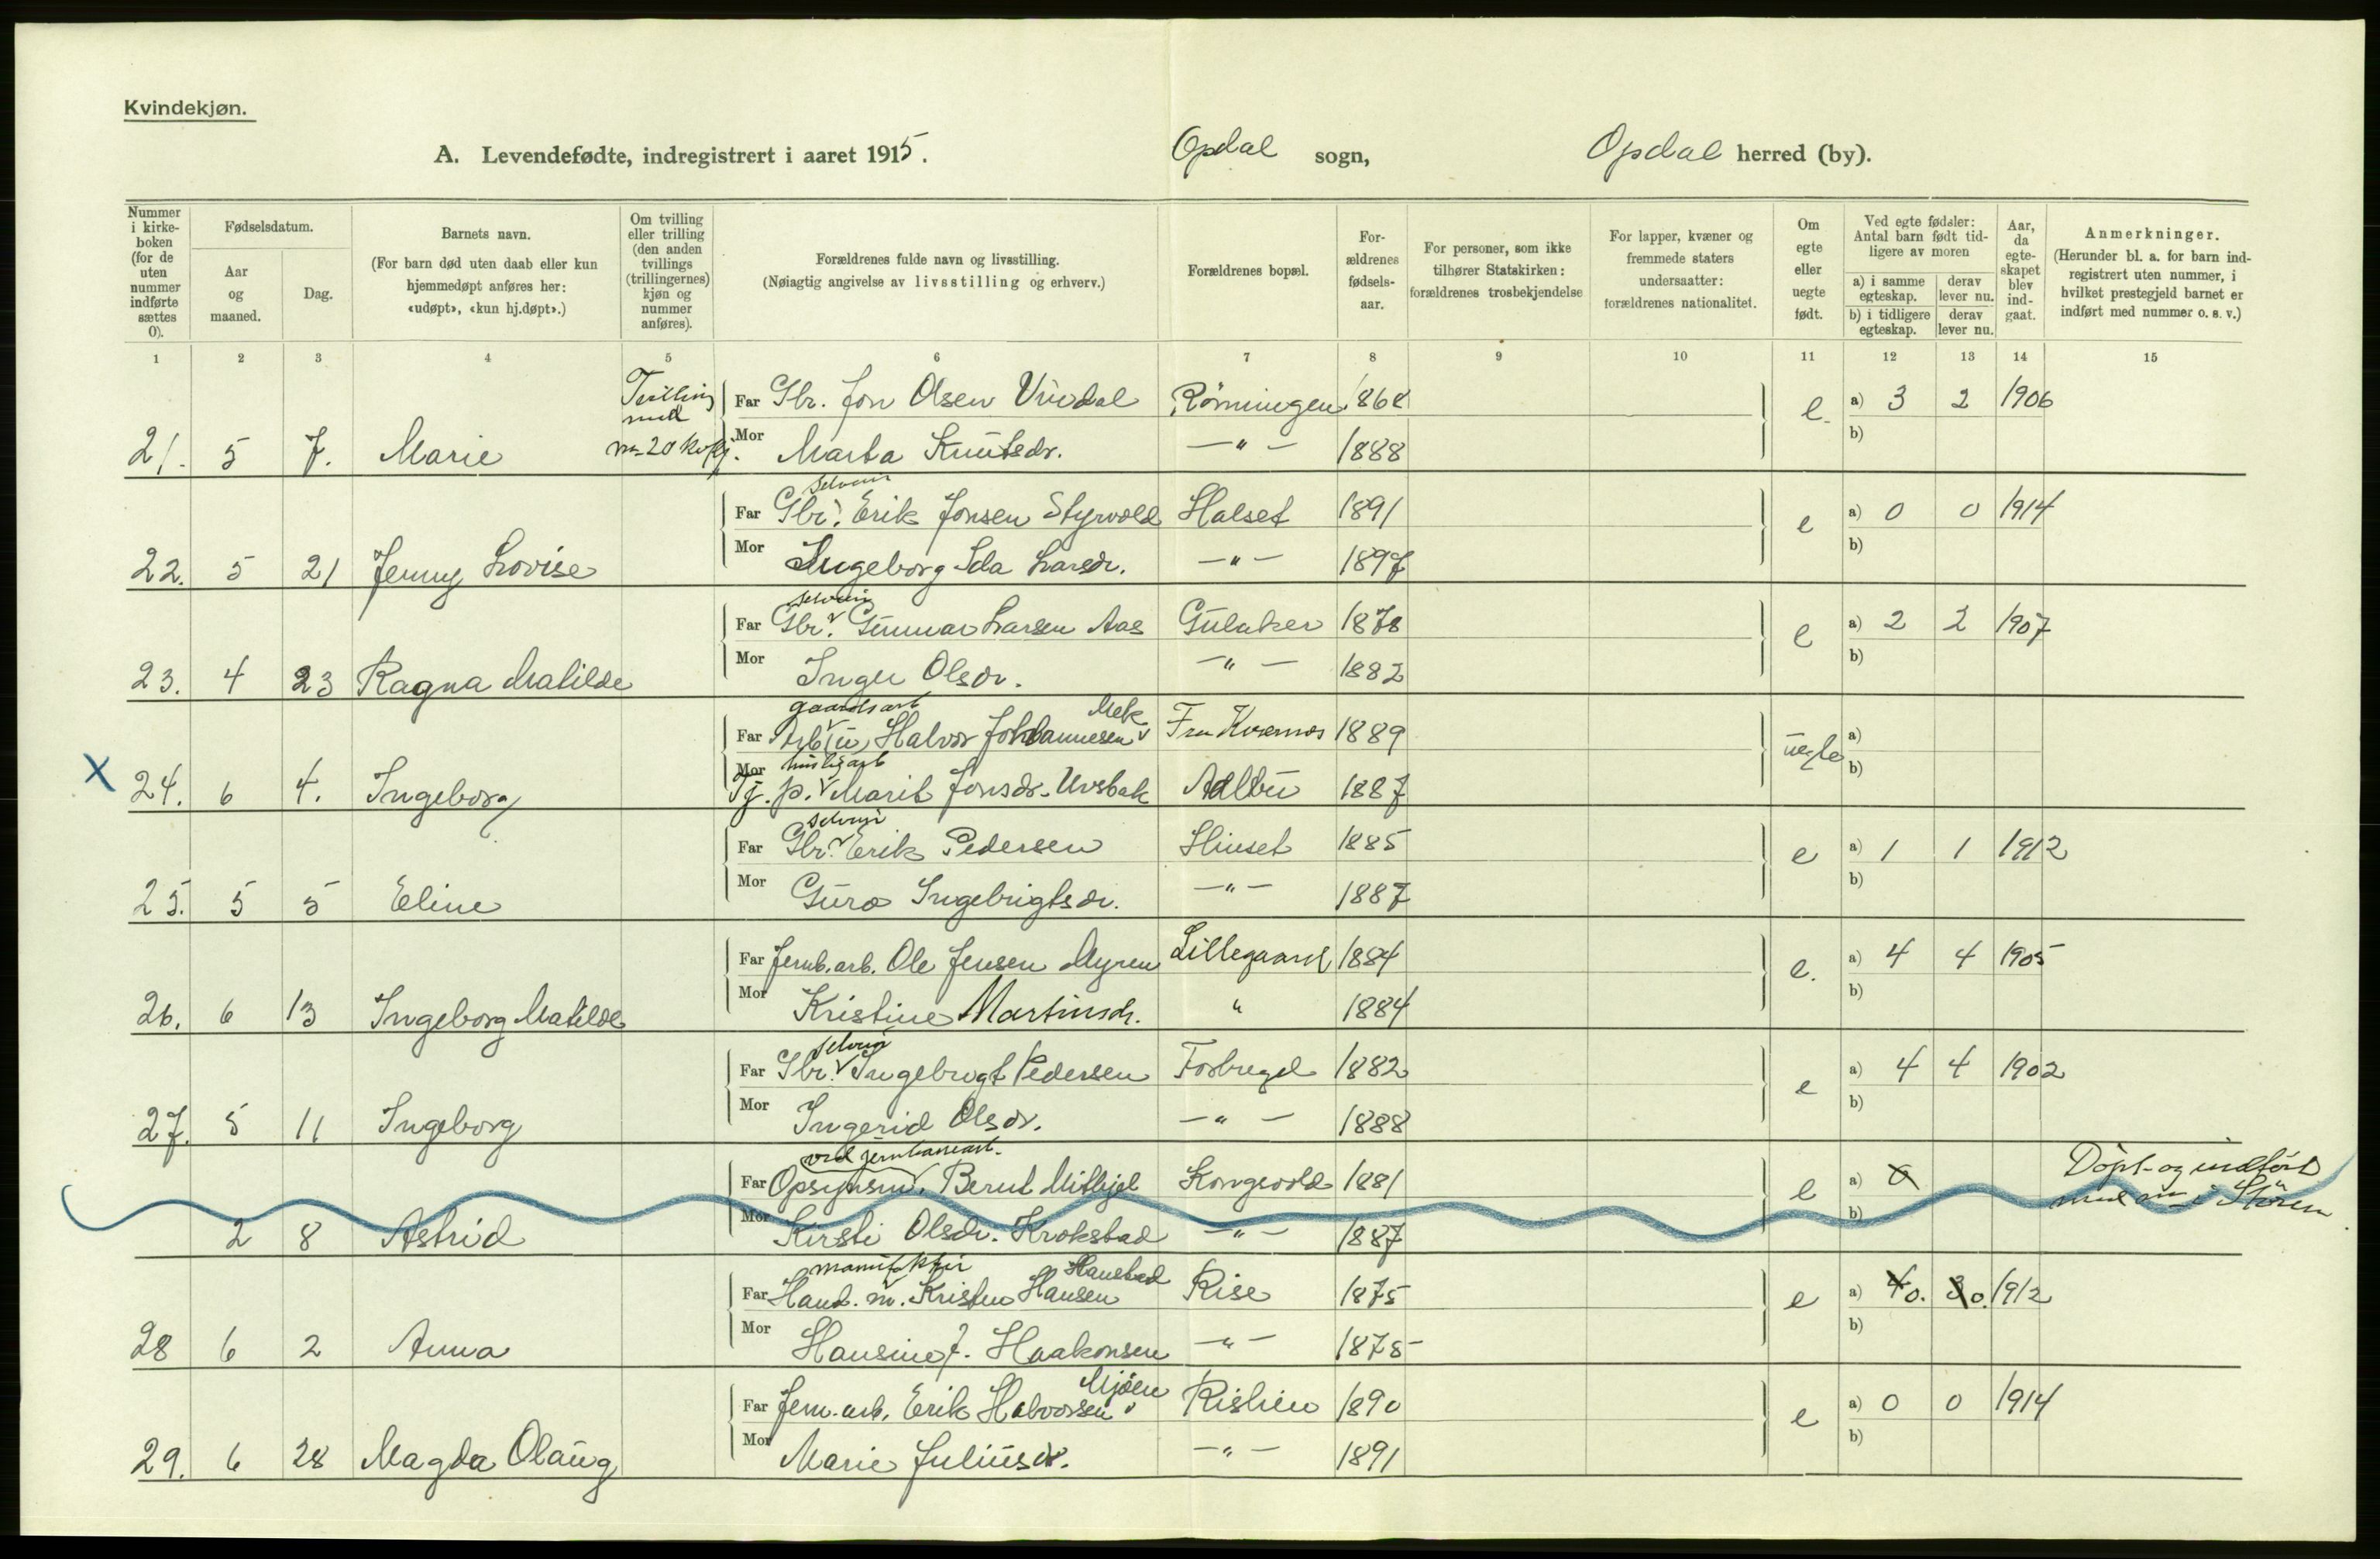 Kvindekjøn.
A. Levendefødte, indregistrert i aaret 1915. Opdal sogn, Opdal herred (by).
Nummer i kirkeboken (for de uten nummer indførte sættes 0).
Fødselsdatum.
Aar og maaned.
Dag.
Barnets navn.
(For barn død uten daab eller kun hjemmedøpt anføres her: «udøpt», «kun hj.døpt».)
Om tvilling eller trilling (den anden tvillings (trillingernes) kjøn og nummer anføres).
Forældrenes fulde navn og livsstilling.
(Nøiagtig angivelse av livsstilling og erhverv.)
Forældrenes bopæl.
Forældrenes fødselsaar.
For personer, som ikke tilhører Statskirken: forældrenes trosbekjendelse
For lapper, kvæner og fremmede staters undersaatter: forældrenes nationalitet.
Om egte eller uegte født.
Ved egte fødsler: Antal barn født tidligere av moren
a) i samme egteskap. derav lever nu.
b) i tidligere egteskap. derav lever nu.
Aar, da egteskapet blev indgaat.
Anmerkninger.
(Herunder bl. a. for barn indregistrert uten nummer, i hvilket prestegjeld barnet er indført med nummer o. s. v.)
1 2 3 4 5 6 7 8 9 10 11 12 13 14 15
Tvilling
med
Far Gbr. Jon Olsen Vindal Rønningen 1868 e. a) 3 2 1906
21. 5 7. Marie nr 20 kvkj. Mor Marta Knutsdr. —"— 1888 b)
selveier
Far Gbr. Erik Jonsen Styrvold Halset 1891 e a) 0 0 1914
22. 5 21 Jenny Lovise Mor Ingeborg Ida Larsdr. —"— 1897 b)
selveier
Far Gbr. Gunnar Larsen Aas Gulaker 1878 e a) 2 2 1907
23. 4 23 Ragna Matilde Mor Inger Olsdr. —"— 1882 b)
gaardsarb Mek
Far Arb. (u) Halvor Johannesen Fra Kvernes 1889 uegte a)
huslig arb
X 24. 6 4. Ingeborg Mor Tj. p. Marit Jonsdr. Uvsbak Adlbu 1887 b)
selveier
Far Gbr. Erik Pedersen Hinset 1885 e a) 1 1 1912
25. 5 5 Eline Mor Guro Ingebrigtsdr. —"— 1887 b)
Far Jernb. arb. Ole Jensen Myren Lillegaard 1884 e. a) 4 4 1905
26. 6 13 Ingeborg Matilde Mor Kristine Martinsdr. " 1884 b)
selveier
Far Gbr. Ingebrigt Pedersen Fosbregd 1882 e a) 4 4 1902
27. 5 11 Ingeborg Mor Ingerid Olsdr. —"— 1888 b)
ved jernbanearb.
Far Opsynsm. Bernt Mithjel Kongsvold 1881 e a) 0 Døpt og indført
2 8 Astrid Mor Kirsti Olsdr. Krokstad —"— 1887 b) med nr i Støren
manufaktur Hanstad
Far Hand. m. Kristen Hansen Rise 1875 e a) 4 0. 3 0. 1912
28 6 2 Anna Mor Hansine J. Haakonsen —"— 1878 b)
Mjøen
Far Jern. arb. Erik Halvorsen Rislien 1890 e a) 0 0 1914
29. 6 28 Magda Olaug Mor Marie Juliusdr. —"— 1891 b)